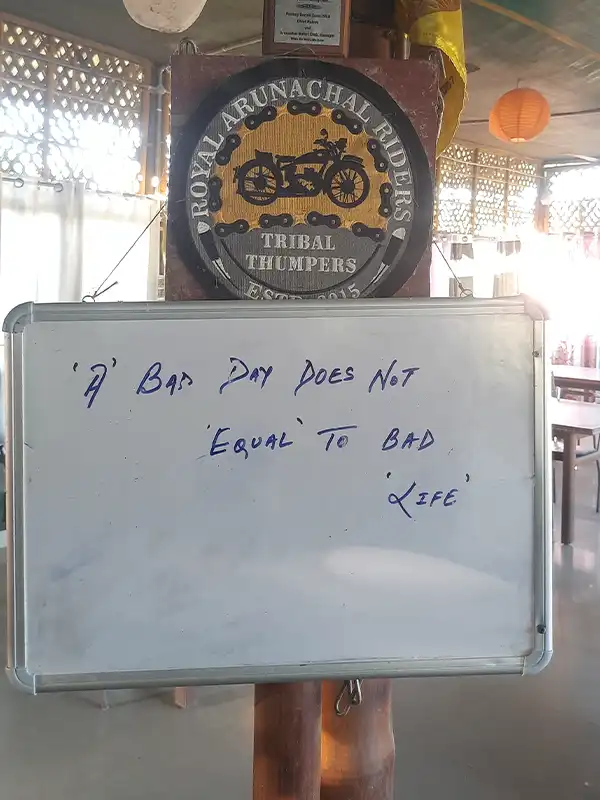 ROYAL ARUNACHAL RIDERS
TRIBAL
THUMPERS
ESTD. 2015
'A' BAD DAY DOES NOT
'EQUAL' TO BAD
'LIFE'